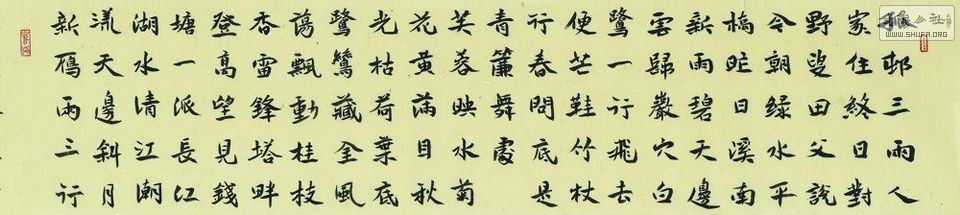 孤邨三兩人
家住終日對
野叟田父說
今朝綠水平
橋昨日溪南
新雨碧天邊
雲歸巖穴白
鷺一行飛去
便芒鞋竹杖
行春問底是
青簾舞處
芙蓉映水菊
花黃滿目秋
光枯荷葉底
鷺鷥藏金風
蕩飄動桂枝
香雷鋒塔畔
登高望見錢
塘一派長江
湖水清江潮
漾天邊斜月
新雁兩三行
公社
WWW.SHUFA.ORG